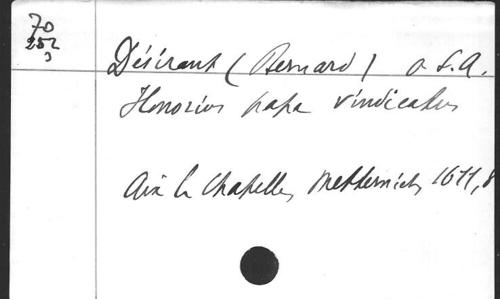 70
252
3
Désirant (Bernard) O S. A.
Honorius papa vindicatus
Aix la Chapelle, Metternich, 1611, 8